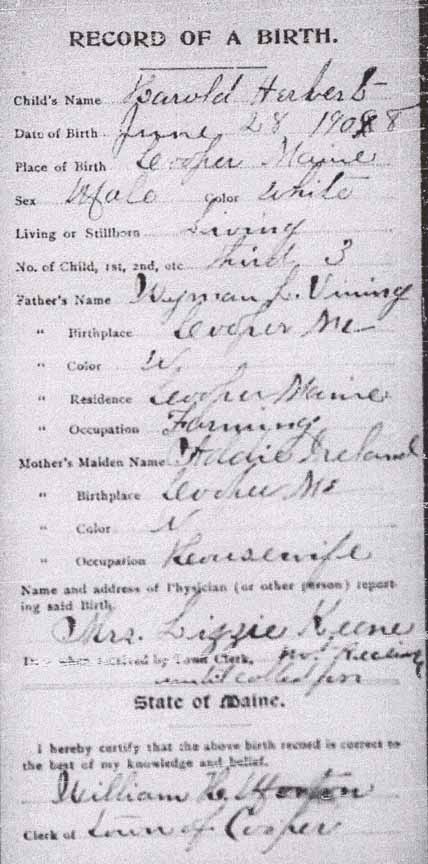 RECORD OF A BIRTH.
Child's Name Harold Herbert
Date of Birth June 28 1908 8
Place of Birth Cooper Maine
Sex Male Color White
Living or Stillborn Living
No. of Child, 1st, 2nd, etc. third 3
Father's Name Wyman L. Vining
" Birthplace Cooper Me
" Color W.
" Residence Cooper Maine
" Occupation Farming
Mother's Maiden Name Addie Ireland
" Birthplace Cooper Me
" Color W
" Occupation Housewife
Name and address of Physician (or other person) report-
ing said Birth.
Mrs. Lizzie Keene
Date when received by Town Clerk, not
until
State of Maine.
I hereby certify that the above birth record is correct to
the best of my knowledge and belief.
William H.
Clerk of Town of Cooper